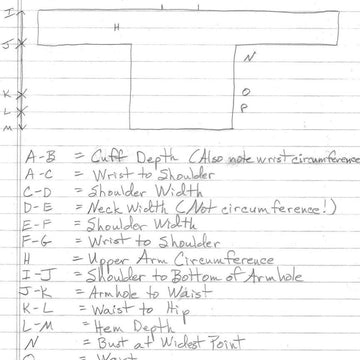 I
H
J
N
K
O
L
P
M
A-B = Cuff Depth (Also note wrist circumference
A-C = Wrist to Shoulder
C-D = Shoulder Width
D-E = Neck Width (Not circumference!)
E-F = Shoulder Width
F-G = Wrist to Shoulder
H = Upper Arm Circumference
I-J = Shoulder to Bottom of Armhole
J-K = Armhole to Waist
K-L = Waist to Hip
L-M = Hem Depth
N = Bust at Widest Point
O = Waist